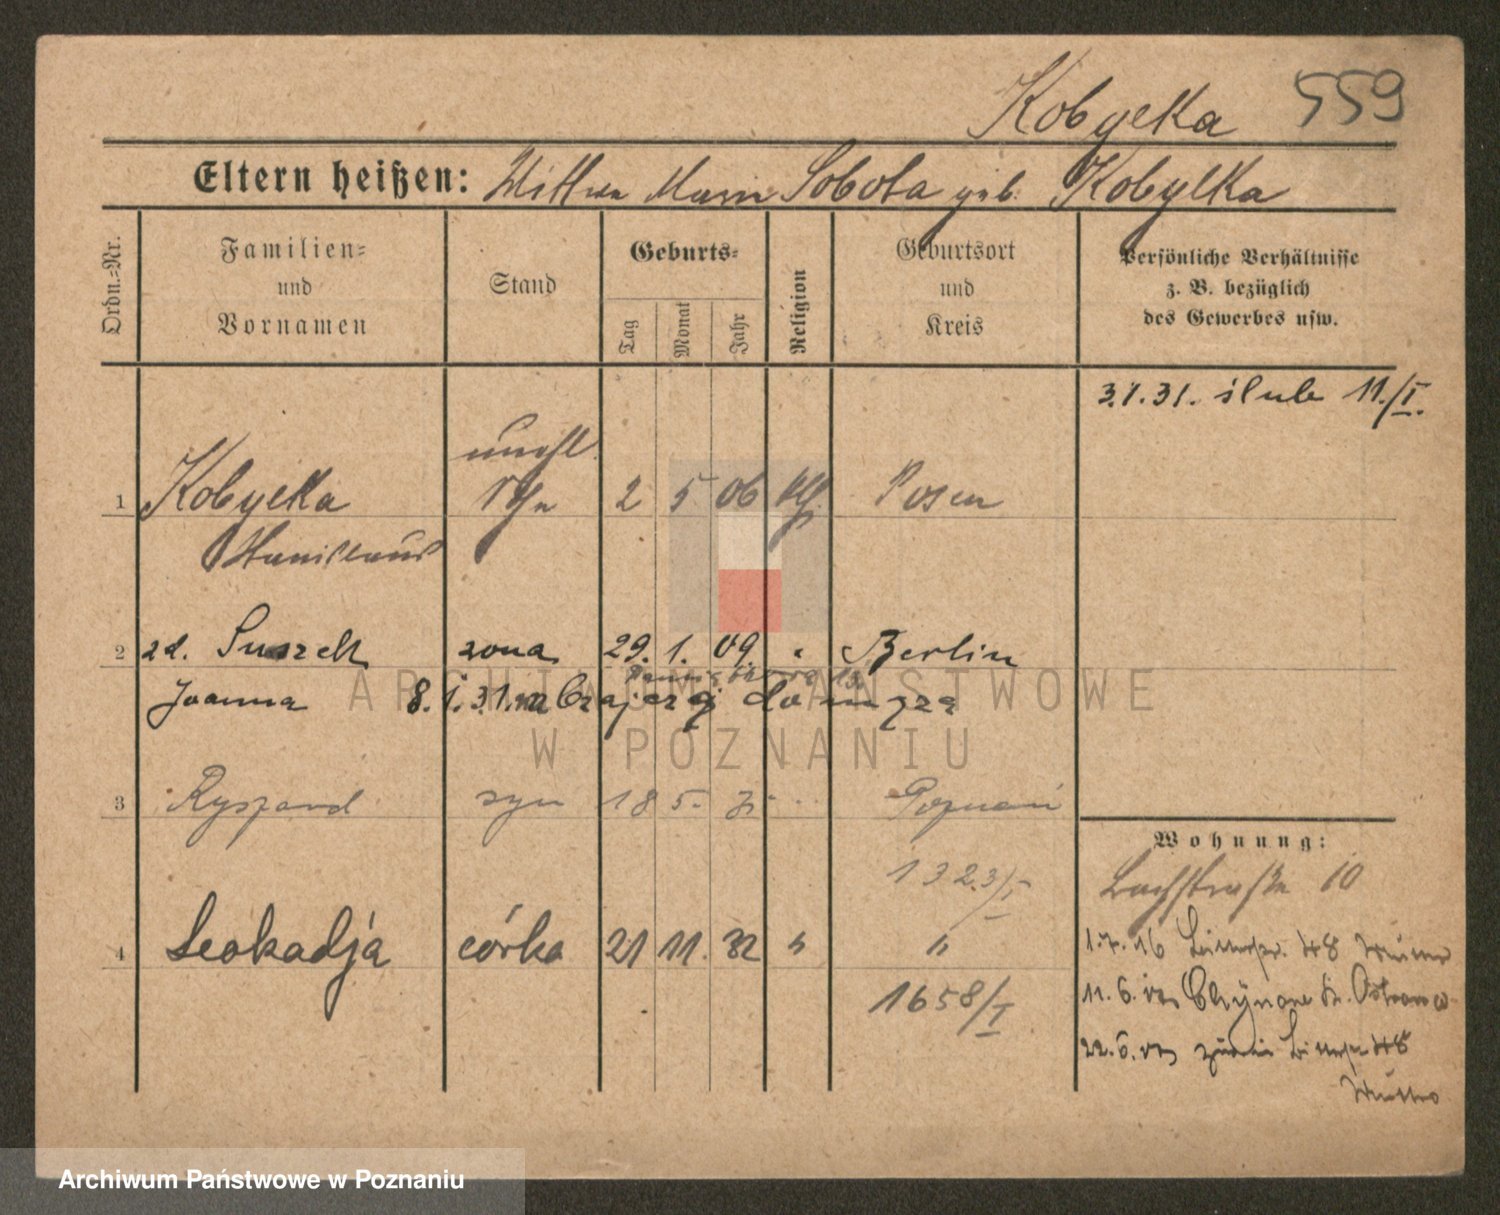 Kobyłka 559
Eltern heißen: Witwe Marie Sobota geb. Kobylka
Ordn.=Nr.
Familien=
und
Vornamen
Stand
Geburts=
Tag
Monat
Jahr
Religion
Geburtsort
und
Kreis
Persönliche Verhältnisse
z. B. bezüglich
des Gewerbes usw.
3.1.31. ślub 11./I.
unehl.
1 Kobyłka Sohn 2 5 06 kth Posen
Stanislaus
2 zd. Suszek żona 29. 1. 09. " Berlin
Joanna 8.1.31. m
3 Ryszard syn 18 5. Poznań
1323/I
4 Leokadja córka 21 11. 32 " "
1658/I
Wohnung:
Bachstraße 10
1.7.16 48
11.6. Kr. Ostrowo
22.6. zurück 48
Mutter
ARCHIWUM PAŃSTWOWE
W POZNANIU
Archiwum Państwowe w Poznaniu